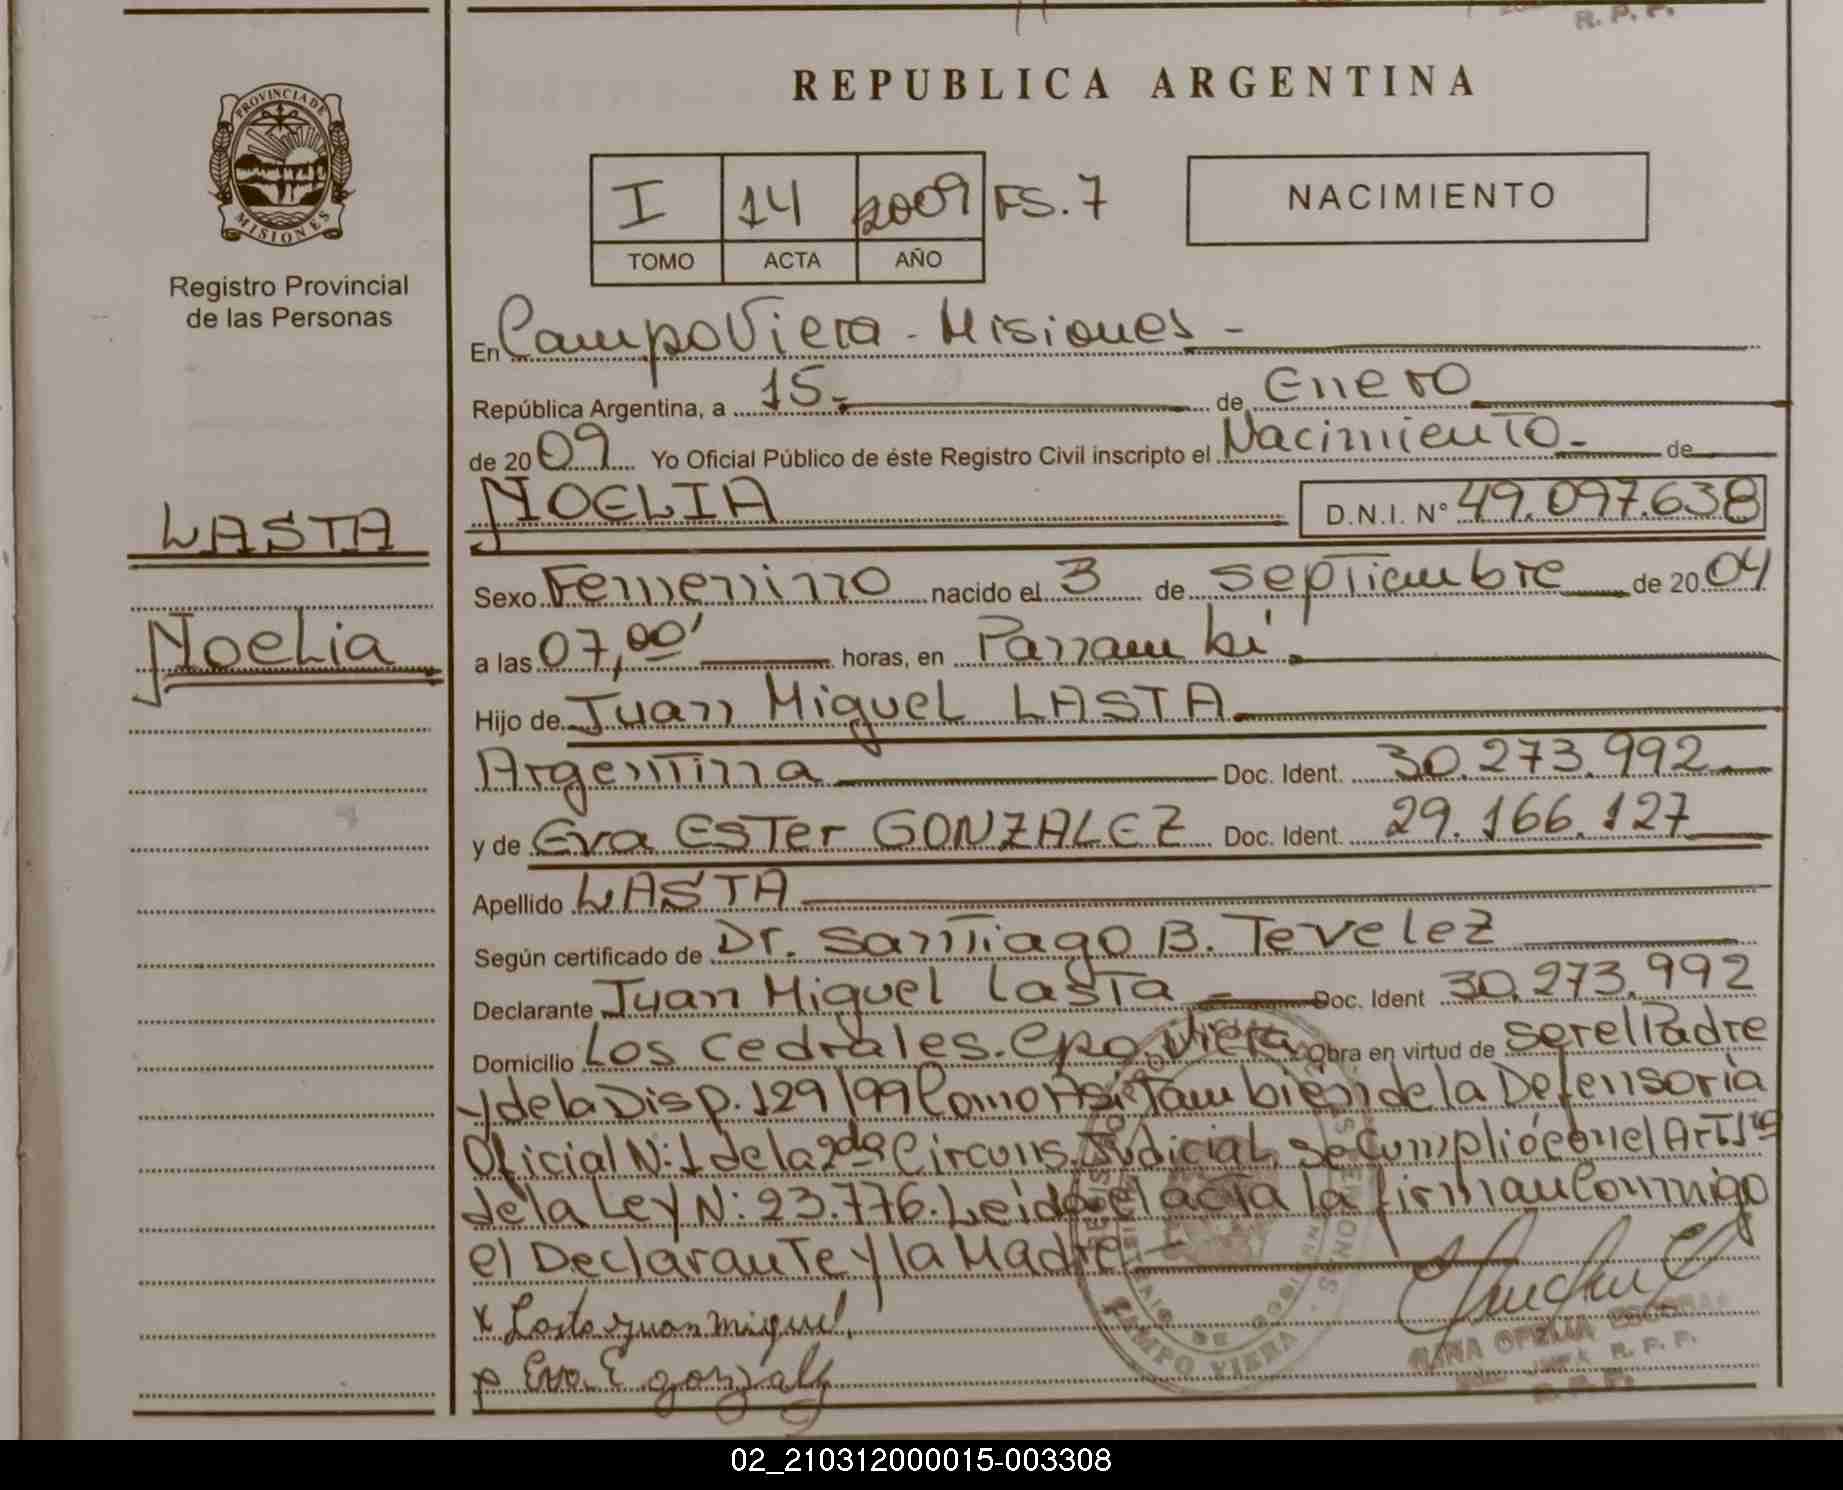 R. P. P.
REPUBLICA ARGENTINA
PROVINCIA DE
MISIONES
Registro Provincial
de las Personas
I 14 2009 FS. 7
TOMO ACTA AÑO
NACIMIENTO
En Campo Viera - Misiones -
República Argentina, a 15- de Enero
de 2009 Yo Oficial Público de éste Registro Civil inscripto el Nacimiento- de
LASTA
NOELIA D.N.I. N° 49.097.638
Sexo Femenino nacido el 3 de septiembre de 2004
Noelia
a las 07,00' horas, en Panambí.
Hijo de Juan Miguel LASTA
Argentina Doc. Ident. 30.273.992
y de Eva Ester GONZALEZ Doc. Ident. 29.166.127
Apellido LASTA
Según certificado de Dr. Santiago B. Tevelez
Declarante Juan Miguel Lasta - Doc. Ident 30.273.992
Domicilio Los Cedrales. Cpo. Viera Obra en virtud de ser el Padre
y de la Disp. 129/99 Como Asi Tambien de la Defensoria
Oficial N: 1 de la 2da Circuns. Judicial, se Cumplió con el Art 1ro
de la Ley N: 23.776. Leida el acta la firman Conmigo
el Declarante y la Madre -
x Lasta Juan Miguel
Eva E gonzalez
CAMPO VIERA
OFELIA
R. P. P.
02_210312000015-003308